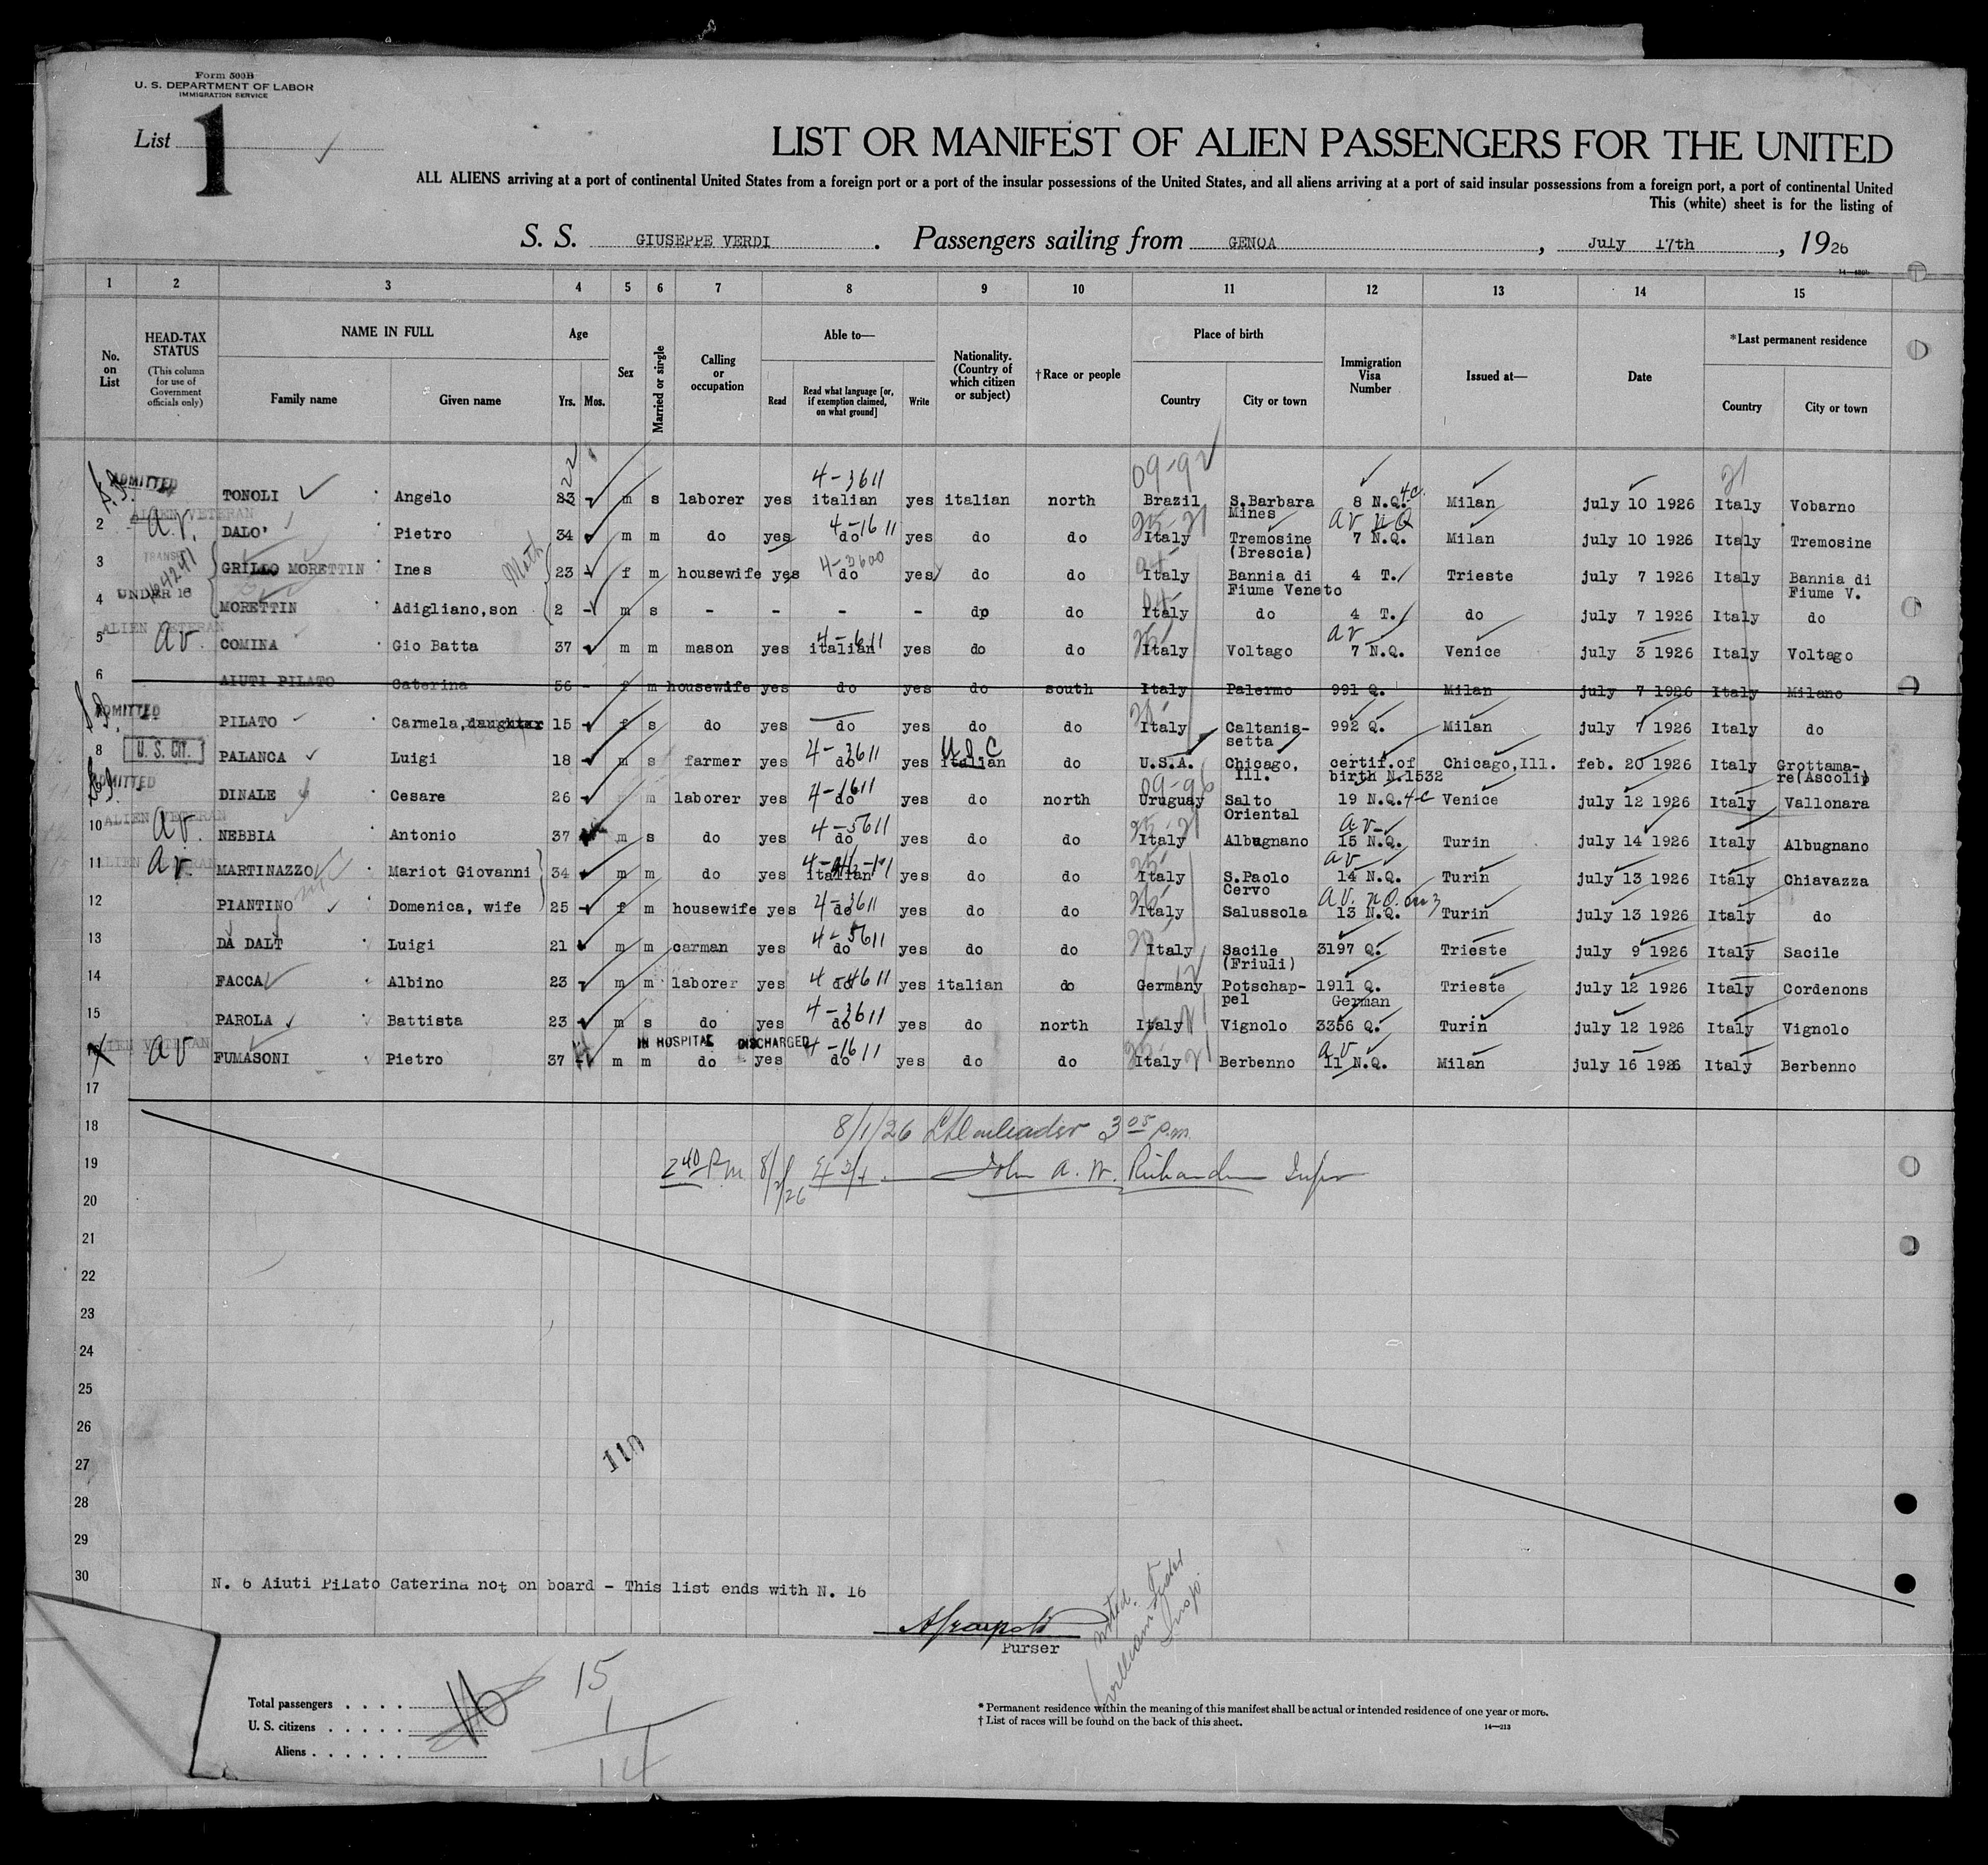 Form 500B
U. S. DEPARTMENT OF LABOR
IMMIGRATION SERVICE
List 1
LIST OR MANIFEST OF ALIEN PASSENGERS FOR THE UNITED
ALL ALIENS arriving at a port of continental United States from a foreign port or a port of the insular possessions of the United States, and all aliens arriving at a port of said insular possessions from a foreign port, a port of continental United
This (white) sheet is for the listing of
S. S. GIUSEPPE VERDI . Passengers sailing from GENOA , July 17th , 1926
1 2 3 4 5 6 7 8 9 10 11 12 13 14 15
No. on List
HEAD-TAX STATUS (This column for use of Government officials only)
NAME IN FULL
Family name Given name
Age
Yrs. Mos.
Sex
Married or single
Calling or occupation
Able to—
Read Read what language [or, if exemption claimed, on what ground] Write
Nationality. (Country of which citizen or subject)
†Race or people
Place of birth
Country City or town
Immigration Visa Number
Issued at—
Date
*Last permanent residence
Country City or town
ADMITTED TONOLI Angelo 23 22 m s laborer yes italian 4-3611 yes italian north Brazil 09-92 S.Barbara Mines 8 N.Q. 4-c Milan july 10 1926 Italy 21 Vobarno
2 ALIEN VETERAN av. DALO' Pietro 34 m m do yes do 4-1611 yes do do Italy Tremosine (Brescia) 7 N.Q. av NQ Milan july 10 1926 Italy Tremosine
3 GRILLO MORETTIN Ines 23 f m housewife yes do 4-3600 yes do do Italy Bannia di Fiume Veneto 4 T. Trieste july 7 1926 Italy Bannia di Fiume V.
4 UNDER 16 MORETTIN Adigliano,son 2 - m s - - - - do do Italy do 4 T. do july 7 1926 Italy do
5 ALIEN VETERAN av. COMINA Gio Batta 37 m m mason yes italian 4-611 yes do do Italy Voltago 7 N.Q. av Venice july 3 1926 Italy Voltago
6 AIUTI PILATO Caterina 56 - f m housewife yes do yes do south Italy Palermo 991 Q. Milan july 7 1926 Italy Milano
ADMITTED PILATO Carmela,daughter 15 f s do yes do yes do do Italy Caltanissetta 992 Q. Milan july 7 1926 Italy do
8 U. S. CIT. PALANCA Luigi 18 m s farmer yes do 4-3611 yes italian U S C do U.S.A. Chicago, Ill. certif.of birth N.1532 Chicago,Ill. feb. 20 1926 Italy Grottamare(Ascoli)
ADMITTED DINALE Cesare 26 m laborer yes do 4-1611 yes do north Uruguay 09-96 Salto Oriental 19 N.Q. 4-c Venice july 12 1926 Italy Vallonara
10 ALIEN VETERAN av. NEBBIA Antonio 37 m s do yes do 4-5611 yes do do Italy Albugnano 15 N.Q. av Turin july 14 1926 Italy Albugnano
11 av. MARTINAZZO Mariot Giovanni 34 m m do yes italian yes do do Italy S.Paolo Cervo 14 N.Q. av Turin july 13 1926 Italy Chiavazza
12 PIANTINO Domenica, wife 25 f m housewife yes do 4-3611 yes do do Italy Salussola 13 N.Q. Turin july 13 1926 Italy do
13 DA DALT Luigi 21 m m carman yes do 4-5611 yes do do Italy Sacile (Friuli) 3197 Q. Trieste july 9 1926 Italy Sacile
14 FACCA Albino 23 m m laborer yes do 4-4611 yes italian do Germany Potschappel 1911 Q. German Trieste july 12 1926 Italy Cordenons
15 PAROLA Battista 23 m s do yes do 4-3611 yes do north Italy Vignolo 3356 Q. Turin july 12 1926 Italy Vignolo
IN HOSPITAL DISCHARGED
av FUMASONI Pietro 37 m m do yes do 4-1611 yes do do Italy Berbenno 11 N.Q. av Milan july 16 1926 Italy Berbenno
17
18 8/1/26 3 05 p.m.
19 2 40 P.m 8/2/26 John A. W. Inspr
20
21
22
23
24
25
26
27 110
28
29
30
N. 6 Aiuti Pilato Caterina not on board - This list ends with N. 16
Purser
noted.
William
Insp.
Total passengers . . . . 16 15
U. S. citizens . . . . . 1
Aliens . . . . . . 14
* Permanent residence within the meaning of this manifest shall be actual or intended residence of one year or more.
† List of races will be found on the back of this sheet.
14—213